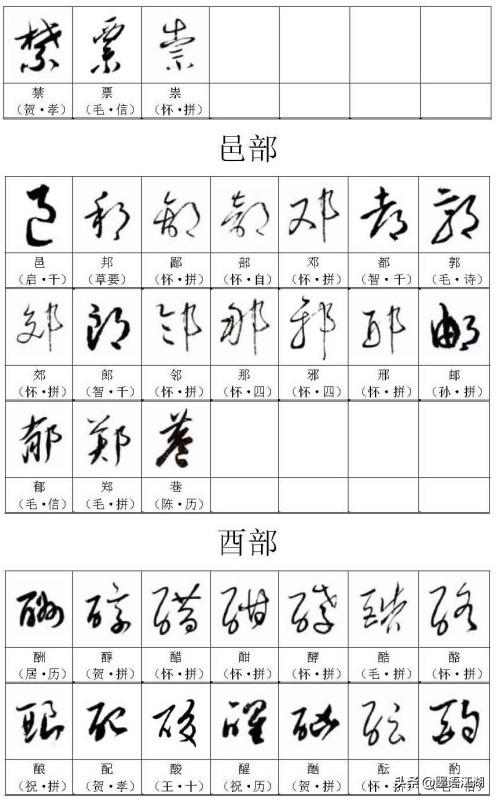 禁 票 祟
（贺·孝） （毛·信） （怀·拼）
邑部
邑 邦 鄙 部 邓 都 郭
（启·千） （草要） （怀·拼） （怀·自） （怀·拼） （智·千） （毛·诗）
郊 郎 邻 那 邪 邢 邮
（怀·拼） （智·千） （怀·拼） （怀·四） （怀·四） （怀·拼） （孙·拼）
郁 郑 巷
（毛·信） （毛·拼） （陈·历）
酉部
酬 醇 醋 酣 酵 酷 酪
（居·历） （贺·拼） （怀·拼） （怀·拼） （怀·拼） （毛·拼） （怀·拼）
酿 配 酸 醒 酗 酝 酌
（祝·拼） （贺·孝） （王·十） （祝·历） （毛·拼）
头条@墨语江湖